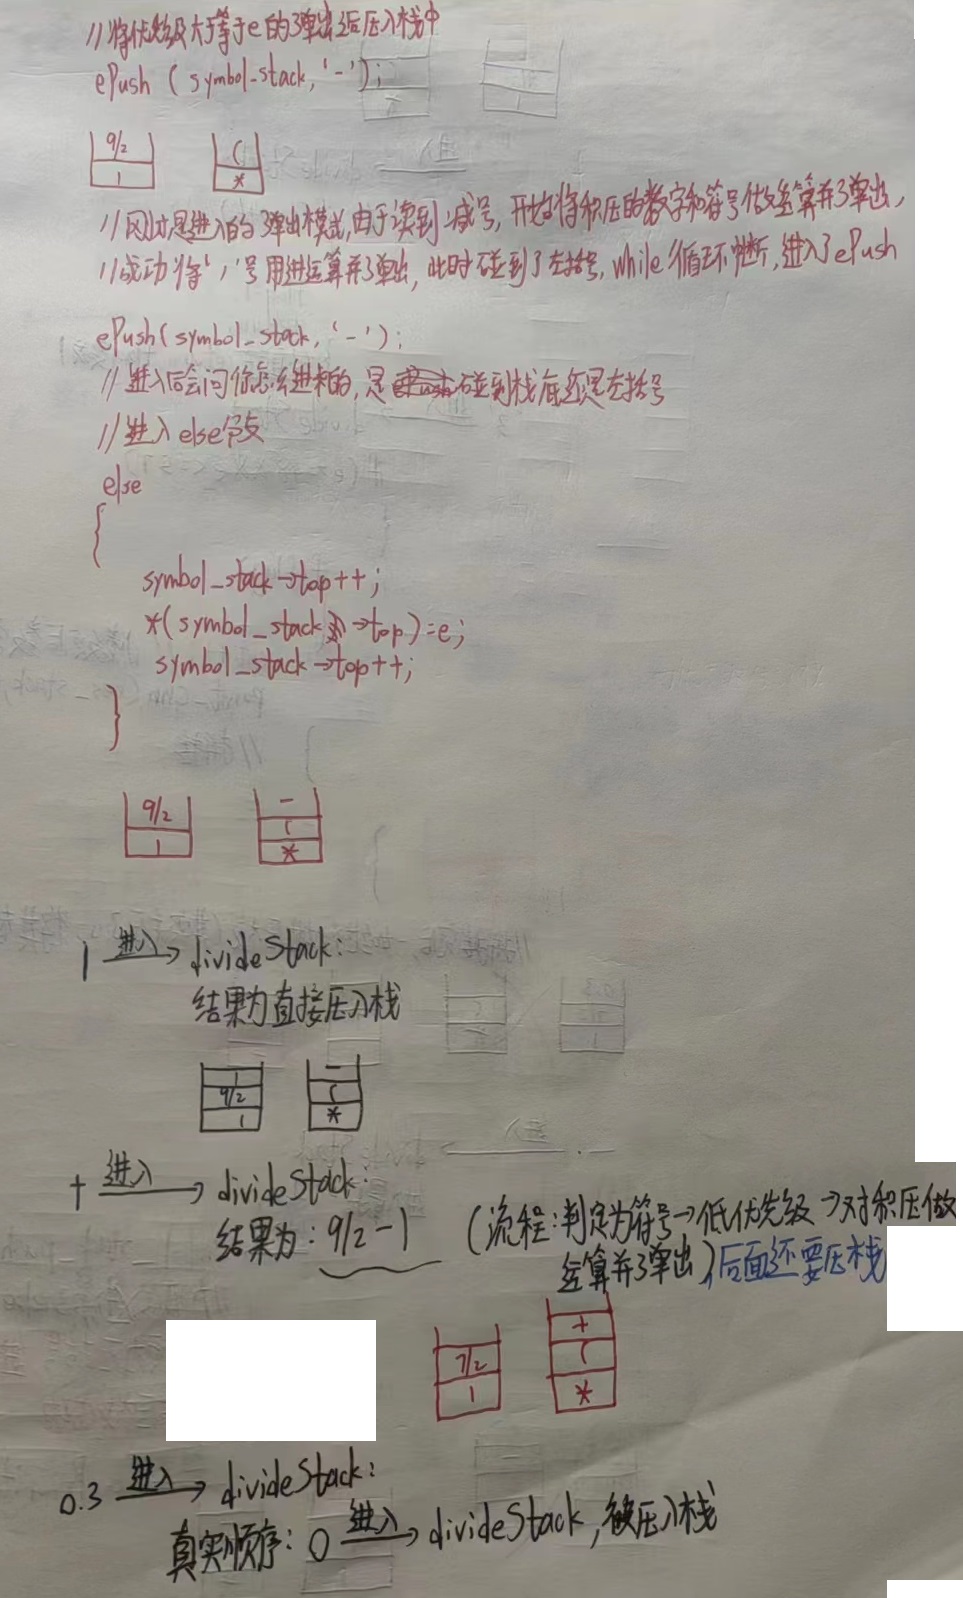 //将优先级大于等于e的弹出后压入栈中
ePush ( symbol_stack, '-' );
9/2 (
1 *
//刚刚是进入的弹出模式,由于读到'-'减号,开始将积压的数字和符号做运算并弹出,
//成功将'/'号用进运算并弹出,此时碰到了左括号,while循环中断,进入了ePush
ePush(symbol_stack, '-');
//进入后会问你怎么进来的,是碰到栈底还是左括号
//进入else
else
{
symbol_stack->top++;
*(symbol_stack->top)=e;
symbol_stack->top++;
}
9/2 -
1 (
*
1 进入→ divideStack:
结果为直接压入栈
1 -
9/2 (
1 *
+ 进入→ divideStack:
结果为: 9/2-1 (流程:判定为符号→低优先级→对积压做
运算并弹出),后面还要压栈
+
7/2 (
1 *
0.3 进入→ divideStack:
真实顺序: 0 进入→ divideStack,被压入栈